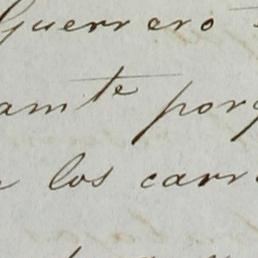 Guerrero
amte porq
los carr